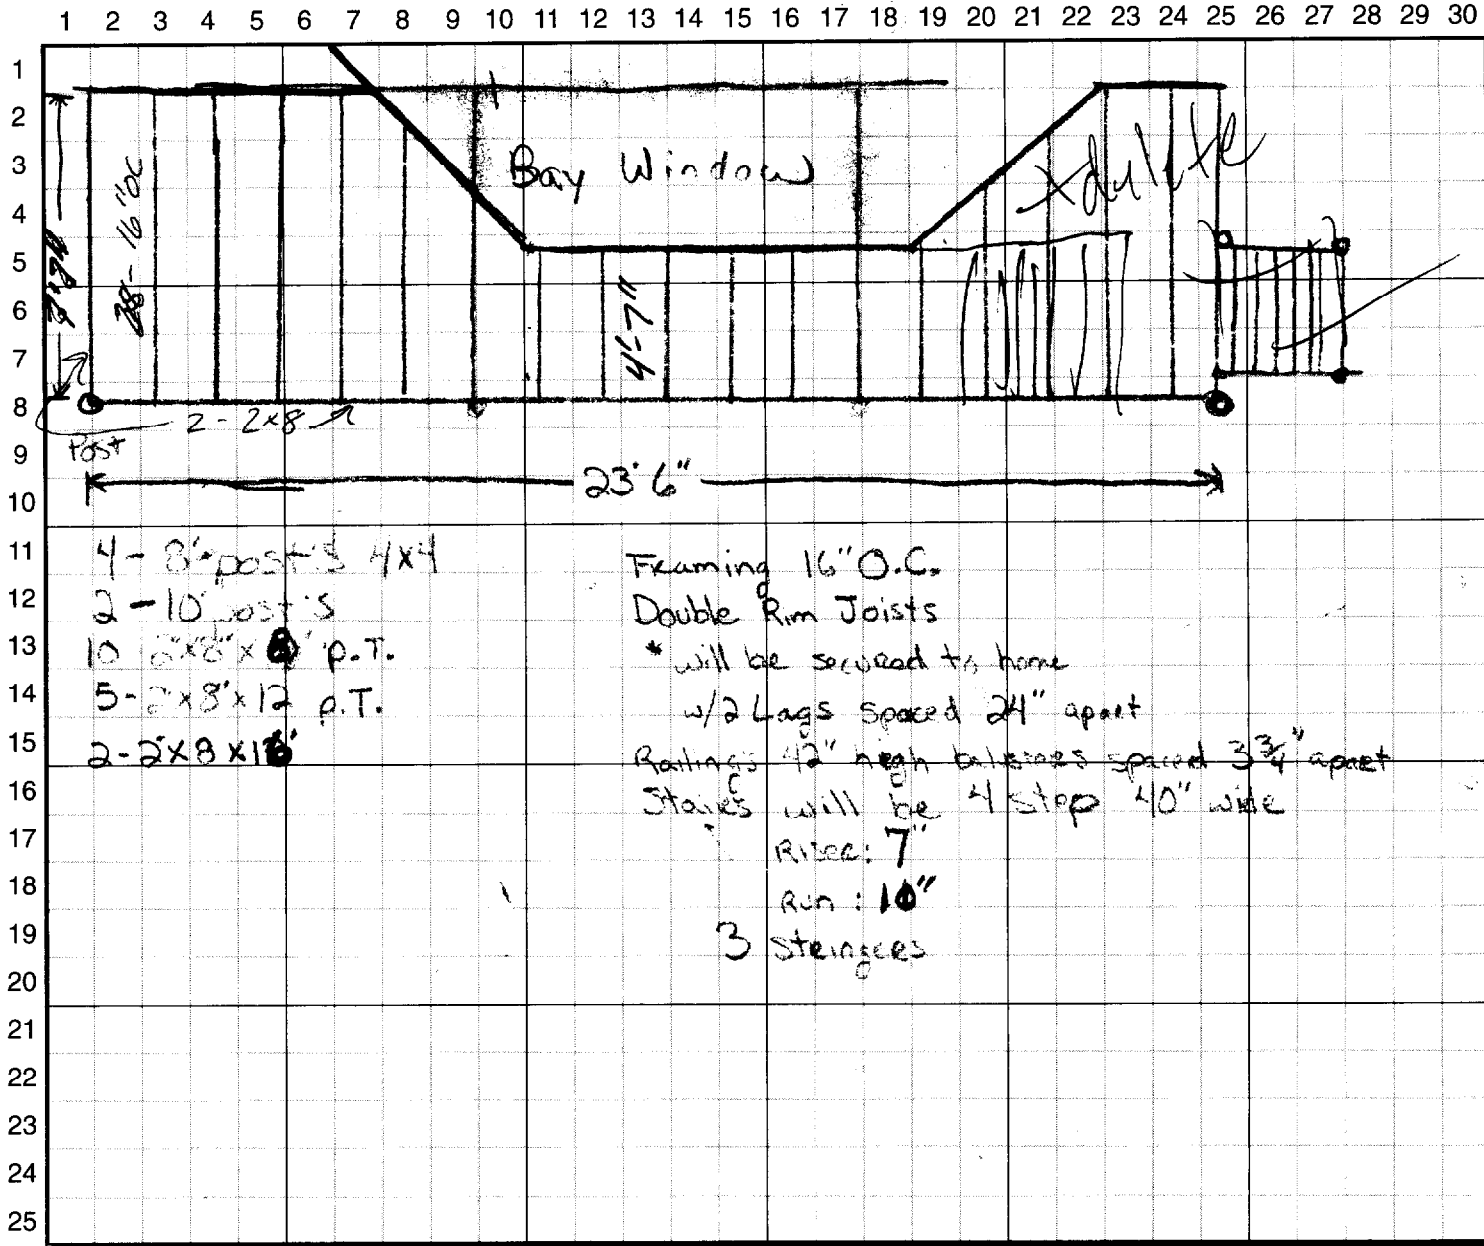 1 2 3 4 5 6 7 8 9 10 11 12 13 14 15 16 17 18 19 20 21 22 23 24 25 26 27 28 29 30
1
2
3
4
5
6
7
8
9
10
11
12
13
14
15
16
17
18
19
20
21
22
23
24
25
Bay Window
16"OC
4'-7"
2-2x8
Post
23'6"
4-8' post's 4x4
2-10' post's
10 2"x8"x P.T.
5-2"x8"x12 P.T.
2-2"x8x
Framing 16" O.C.
Double Rim Joists
* will be secured to home
w/2 Lags spaced 24" apart
Railings 42" high spaced 3 3/4" apart
Stairs will be 4 step 40" wide
Riser: 7"
Run: 10"
3 Stringers